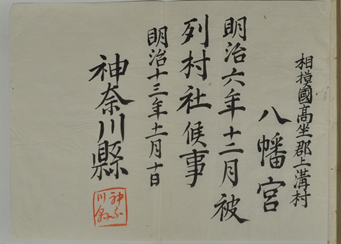 相模國高坐郡上溝村
八幡宮
明治六年十二月被
列村社候事
明治十三年十一月十日
神奈川縣